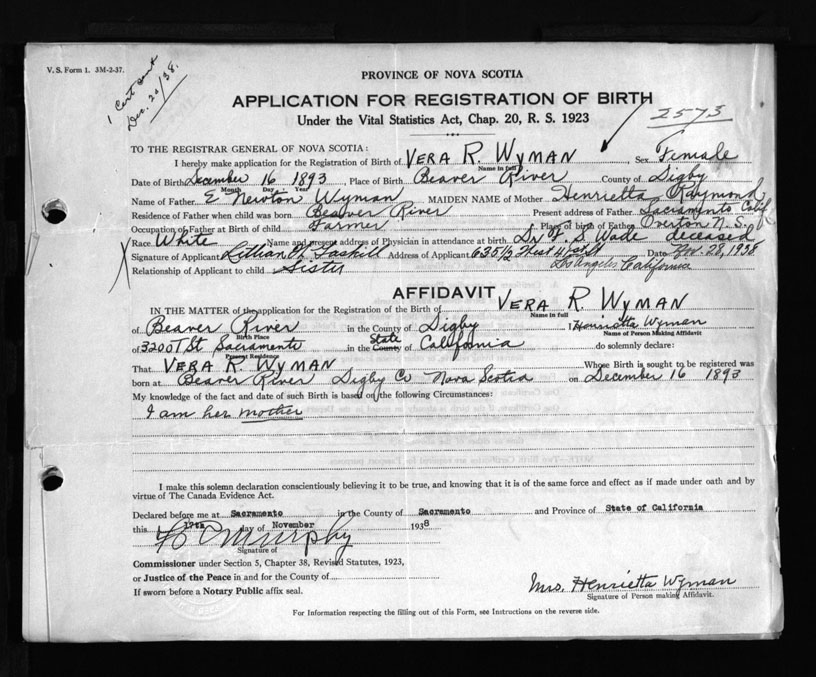 V. S. Form 1. 3M-2-37.
1 Cert sent
Dec. 20/38.
PROVINCE OF NOVA SCOTIA
APPLICATION FOR REGISTRATION OF BIRTH
Under the Vital Statistics Act, Chap. 20, R. S. 1923
2573
TO THE REGISTRAR GENERAL OF NOVA SCOTIA:
I hereby make application for the Registration of Birth of VERA R. WYMAN, Sex Female
Name in full
Date of Birth December 16 1893, Place of Birth Beaver River County of Digby
Month Day Year
Name of Father E Newton Wyman MAIDEN NAME of Mother Henrietta Raymond
Residence of Father when child was born Beaver River Present address of Father Sacramento Calif
Occupation of Father at Birth of child Farmer Place of birth of Father Overton N. S.
Race White Name and present address of Physician in attendance at birth Dr F. S. Wade deceased
Signature of Applicant Lillian M. Gaskill Address of Applicant 635½ West Date Nov. 28, 1938
Los Angeles California
Relationship of Applicant to child Sister
AFFIDAVIT
IN THE MATTER of the application for the Registration of the Birth of VERA R. WYMAN
Name in full
of Beaver River in the County of Digby I Henrietta Wyman
Birth Place Name of Person Making Affidavit
of 3200 T St Sacramento in the County State of California do solemnly declare:
Present Residence
That VERA R. WYMAN Whose Birth is sought to be registered was
born at Beaver River Digby Co Nova Scotia on December 16 1893
My knowledge of the fact and date of such Birth is based on the following Circumstances:
I am her mother
I make this solemn declaration conscientiously believing it to be true, and knowing that it is of the same force and effect as if made under oath and by
virtue of The Canada Evidence Act.
Declared before me at Sacramento in the County of Sacramento and Province of State of California
this 17th day of November 1938
Murphy
Signature of
Commissioner under Section 5, Chapter 38, Revised Statutes, 1923,
or Justice of the Peace in and for the County of
If sworn before a Notary Public affix seal.
Mrs. Henrietta Wyman
Signature of Person making Affidavit.
For Information respecting the filling out of this Form, see Instructions on the reverse side.